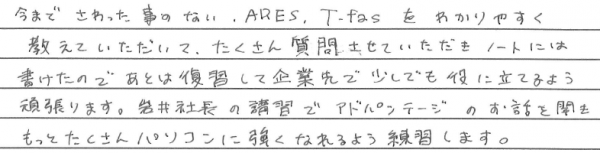 今まで さわった事のない、ARES、T-fas を わかりやすく
教えていただいて、たくさん質問させていただき ノートには
書けたので あとは復習して企業先で少しでも役に立てるよう
頑張ります。岩井社長の講習で アドバンテージ のお話を聞き
もっとたくさんパソコンに強くなれるよう練習します。